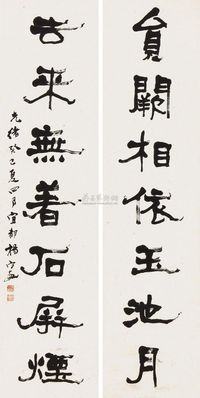 員闕相依玉池月
去來無着石屏煙
光緒癸巳夏四月宜都楊守敬